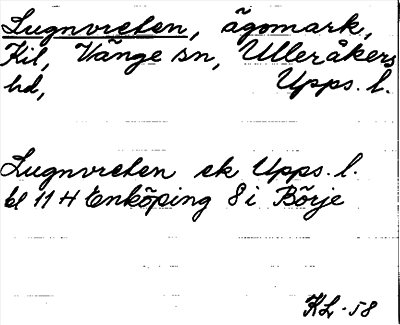 Lugnvreten, ägomark,
Kil, Vänge sn, Ulleråkers
hd, Upps. l.
Lugnvreten ek Upps. l.
bl 11 H Enköping 8 i Börje
KL-58